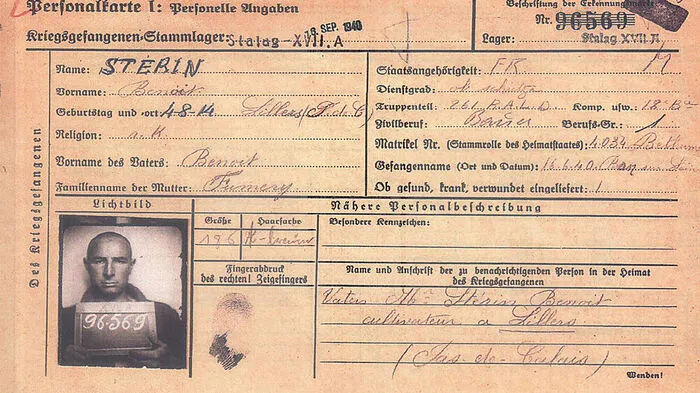 Personalkarte I: Personelle Angaben
Kriegsgefangenen-Stammlager: Stalag-XVII.A
18. SEP. 1940
Beschriftung der Erkennungsmarke
Nr. 96569
Lager: Stalag XVII A
Des Kriegsgefangenen
Name: STÉRIN
Vorname: Benoit
Geburtstag und -ort: 4-8-14 Lillers (P. d. C)
Religion: r. K.
Vorname des Vaters: Benoit
Familienname der Mutter: Fumery
Staatsangehörigkeit: FR
M
Dienstgrad:
Truppenteil: 261 R.A.L.D Komp. usw.: 18 Ba
Zivilberuf: Bauer Berufs-Gr.: 1
Matrikel Nr. (Stammrolle des Heimatstaates): 4034
Gefangennahme (Ort und Datum): 16.6.40
Ob gesund, krank, verwundet eingeliefert: /
Lichtbild
96-569
Größe
Haarfarbe
Fingerabdruck
des rechten! Zeigefingers
Nähere Personalbeschreibung
Besondere Kennzeichen:
Name und Anschrift der zu benachrichtigenden Person in der Heimat
des Kriegsgefangenen
Vater Stérin Benoit
cultivateur a Lillers
(Pas-de-Calais)
Wenden!